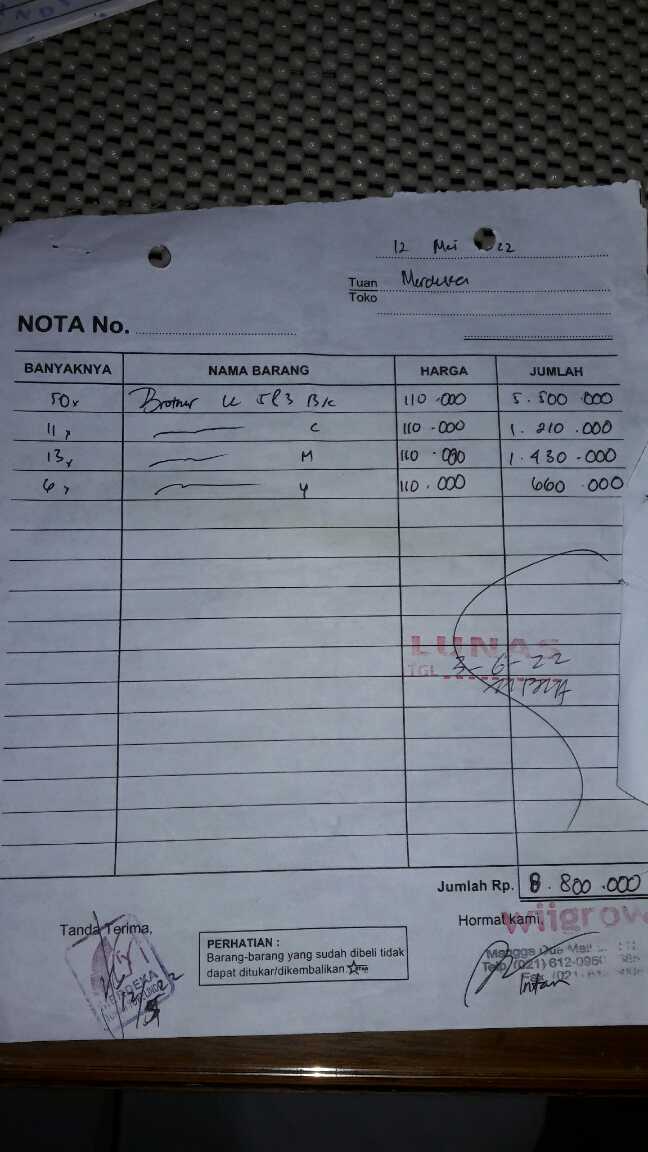 12 Mei 22
Tuan Merdeka
Toko
NOTA No.
BANYAKNYA NAMA BARANG HARGA JUMLAH
50 x Brother 583 BK 110.000 5.500.000
11 x C 110.000 1.210.000
13 x M 110.000 1.430.000
6 x Y 110.000 660.000
LUNAS
TGL 3-6-22
Jumlah Rp. 8.800.000
Tanda Terima,
Hormat kami,
wiigrow
PERHATIAN :
Barang-barang yang sudah dibeli tidak
dapat ditukar/dikembalikan
Mangga Dua Mall
Telp. (021) 612-0960
Fax. (021)
Intan
12/5 22